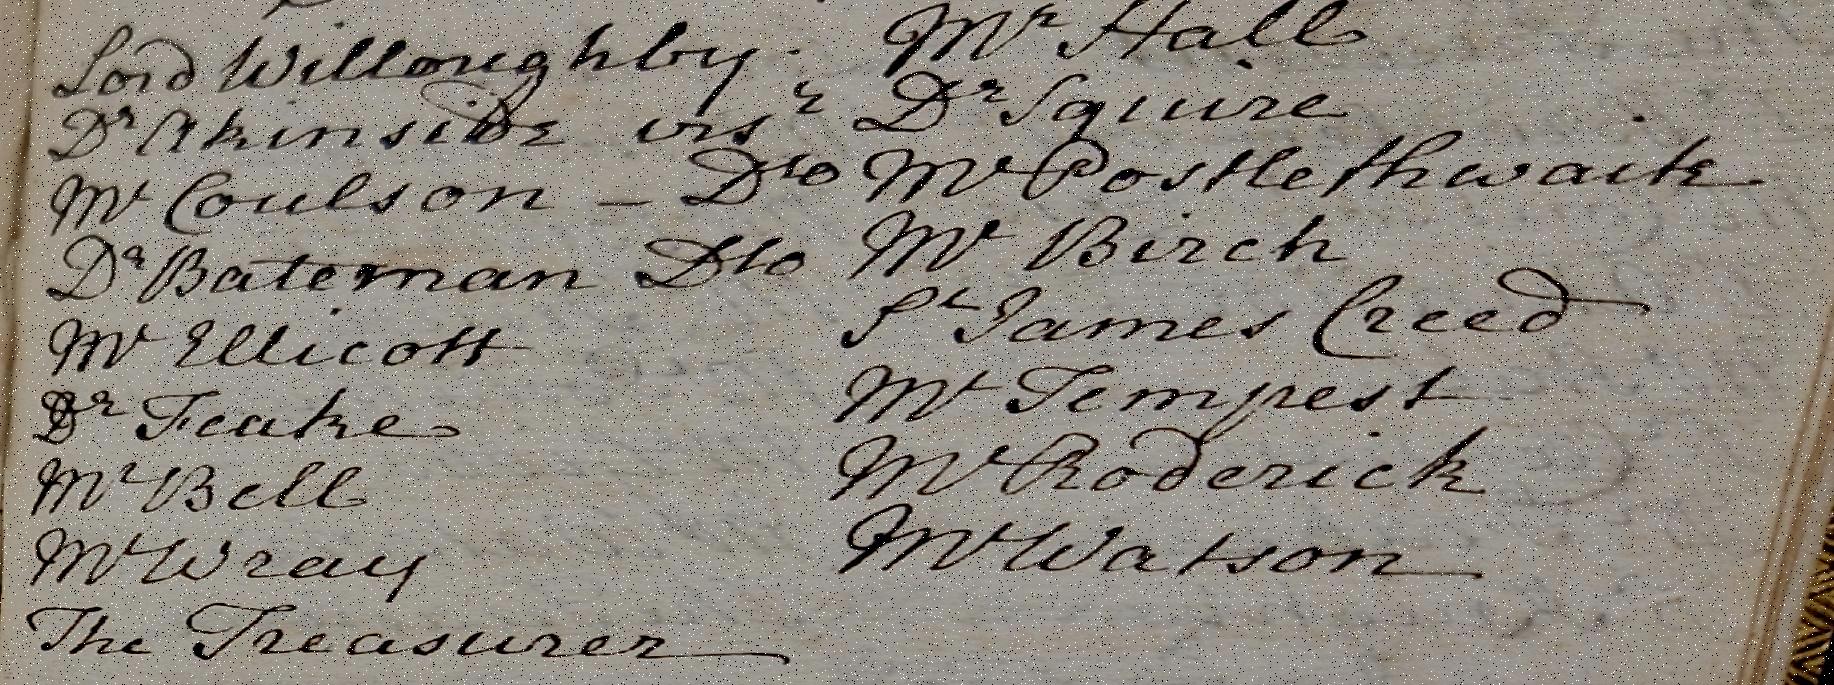 Lord Willoughby.
Dr Akinside visr
Mr Coulson - Dto
Dr Bateman Dto
Mr Ellicott
Dr Feake
Mr Bell
Mr Wray
The Treasurer
Mr Hall
Dr Squire
Mr Postlethwaite
Mr Birch
Sr James Creed
Mr Tempest
Mr Roderick
Mr Watson